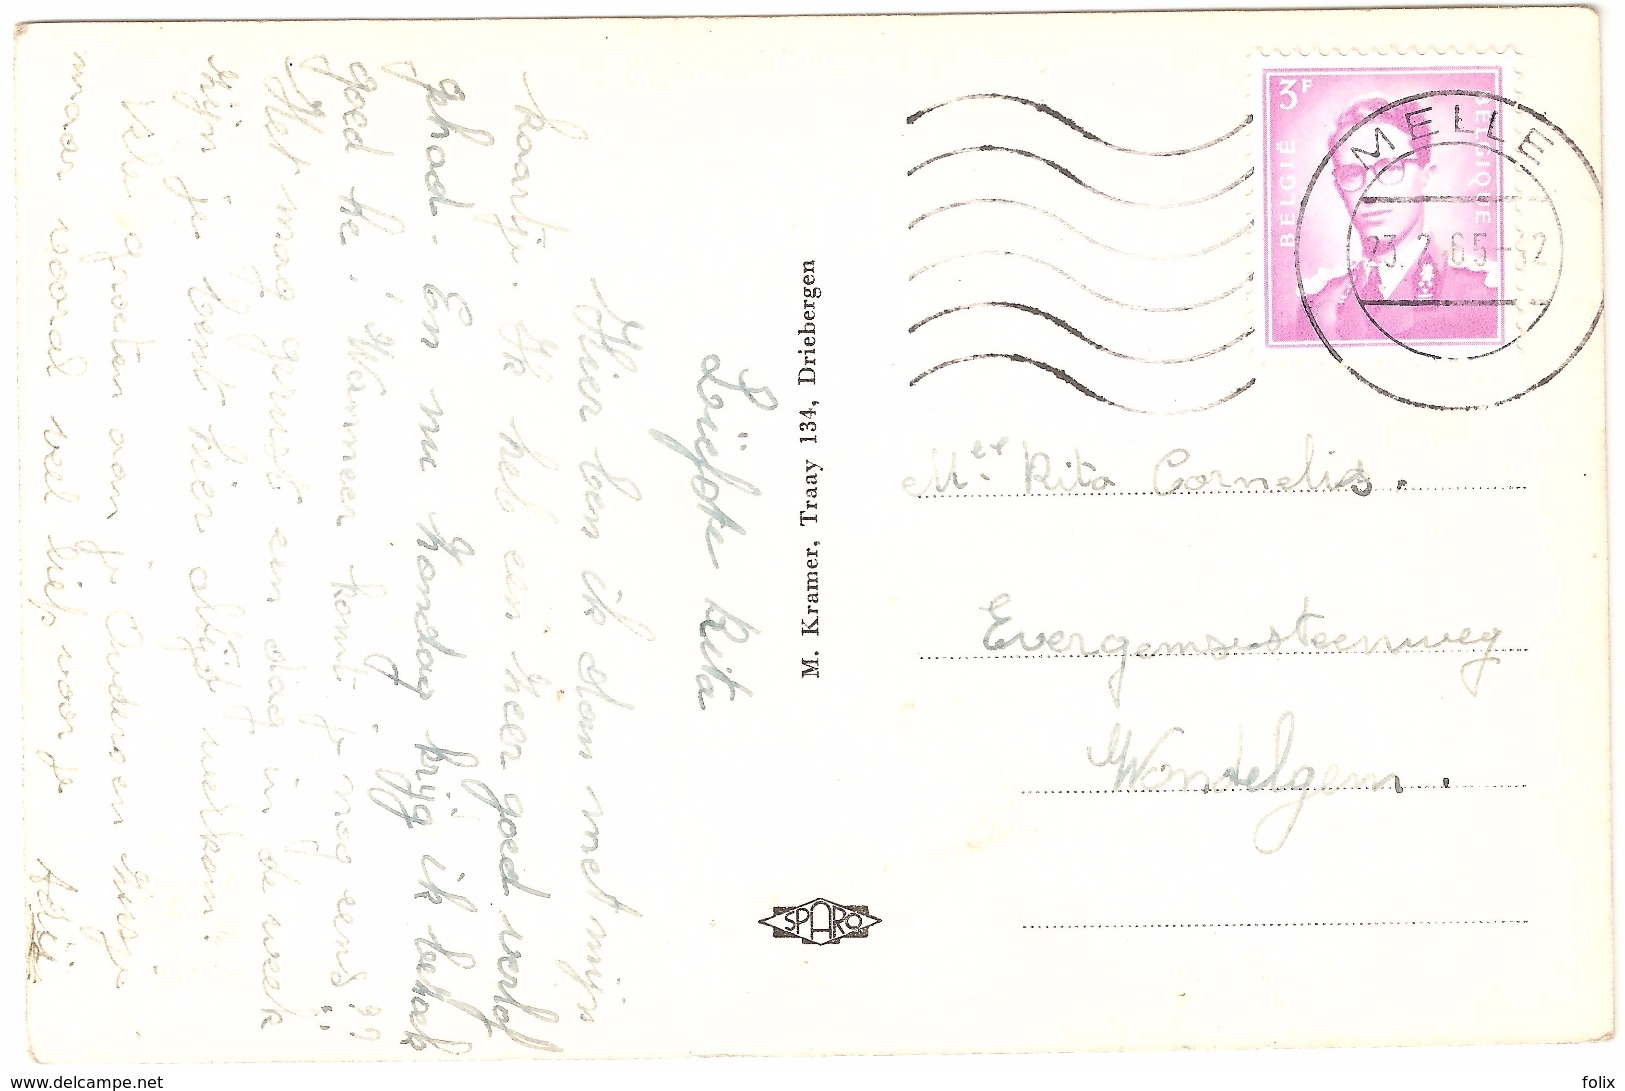 Liefste Rita
Hier ben ik dan met mijn
kaartje. Ik heb een zeer goed verlof
gehad. En nu zondag krijg ik bezoek
goed he! Wanneer komt je nog eens??
Het mag gerust een dag in de week
zijn je bent hier altijd welkom!
Vele groeten aan je Ouders en zusje
maar vooral veel liefs voor je
M. Kramer, Traay 134, Driebergen
SPARO
3F
BELGIË
BELGIQUE
MELLE
23.2.65-12
Melle Rita Cornelis.
Evergemsesteenweg
Wondelgem.
www.delcampe.net
folix